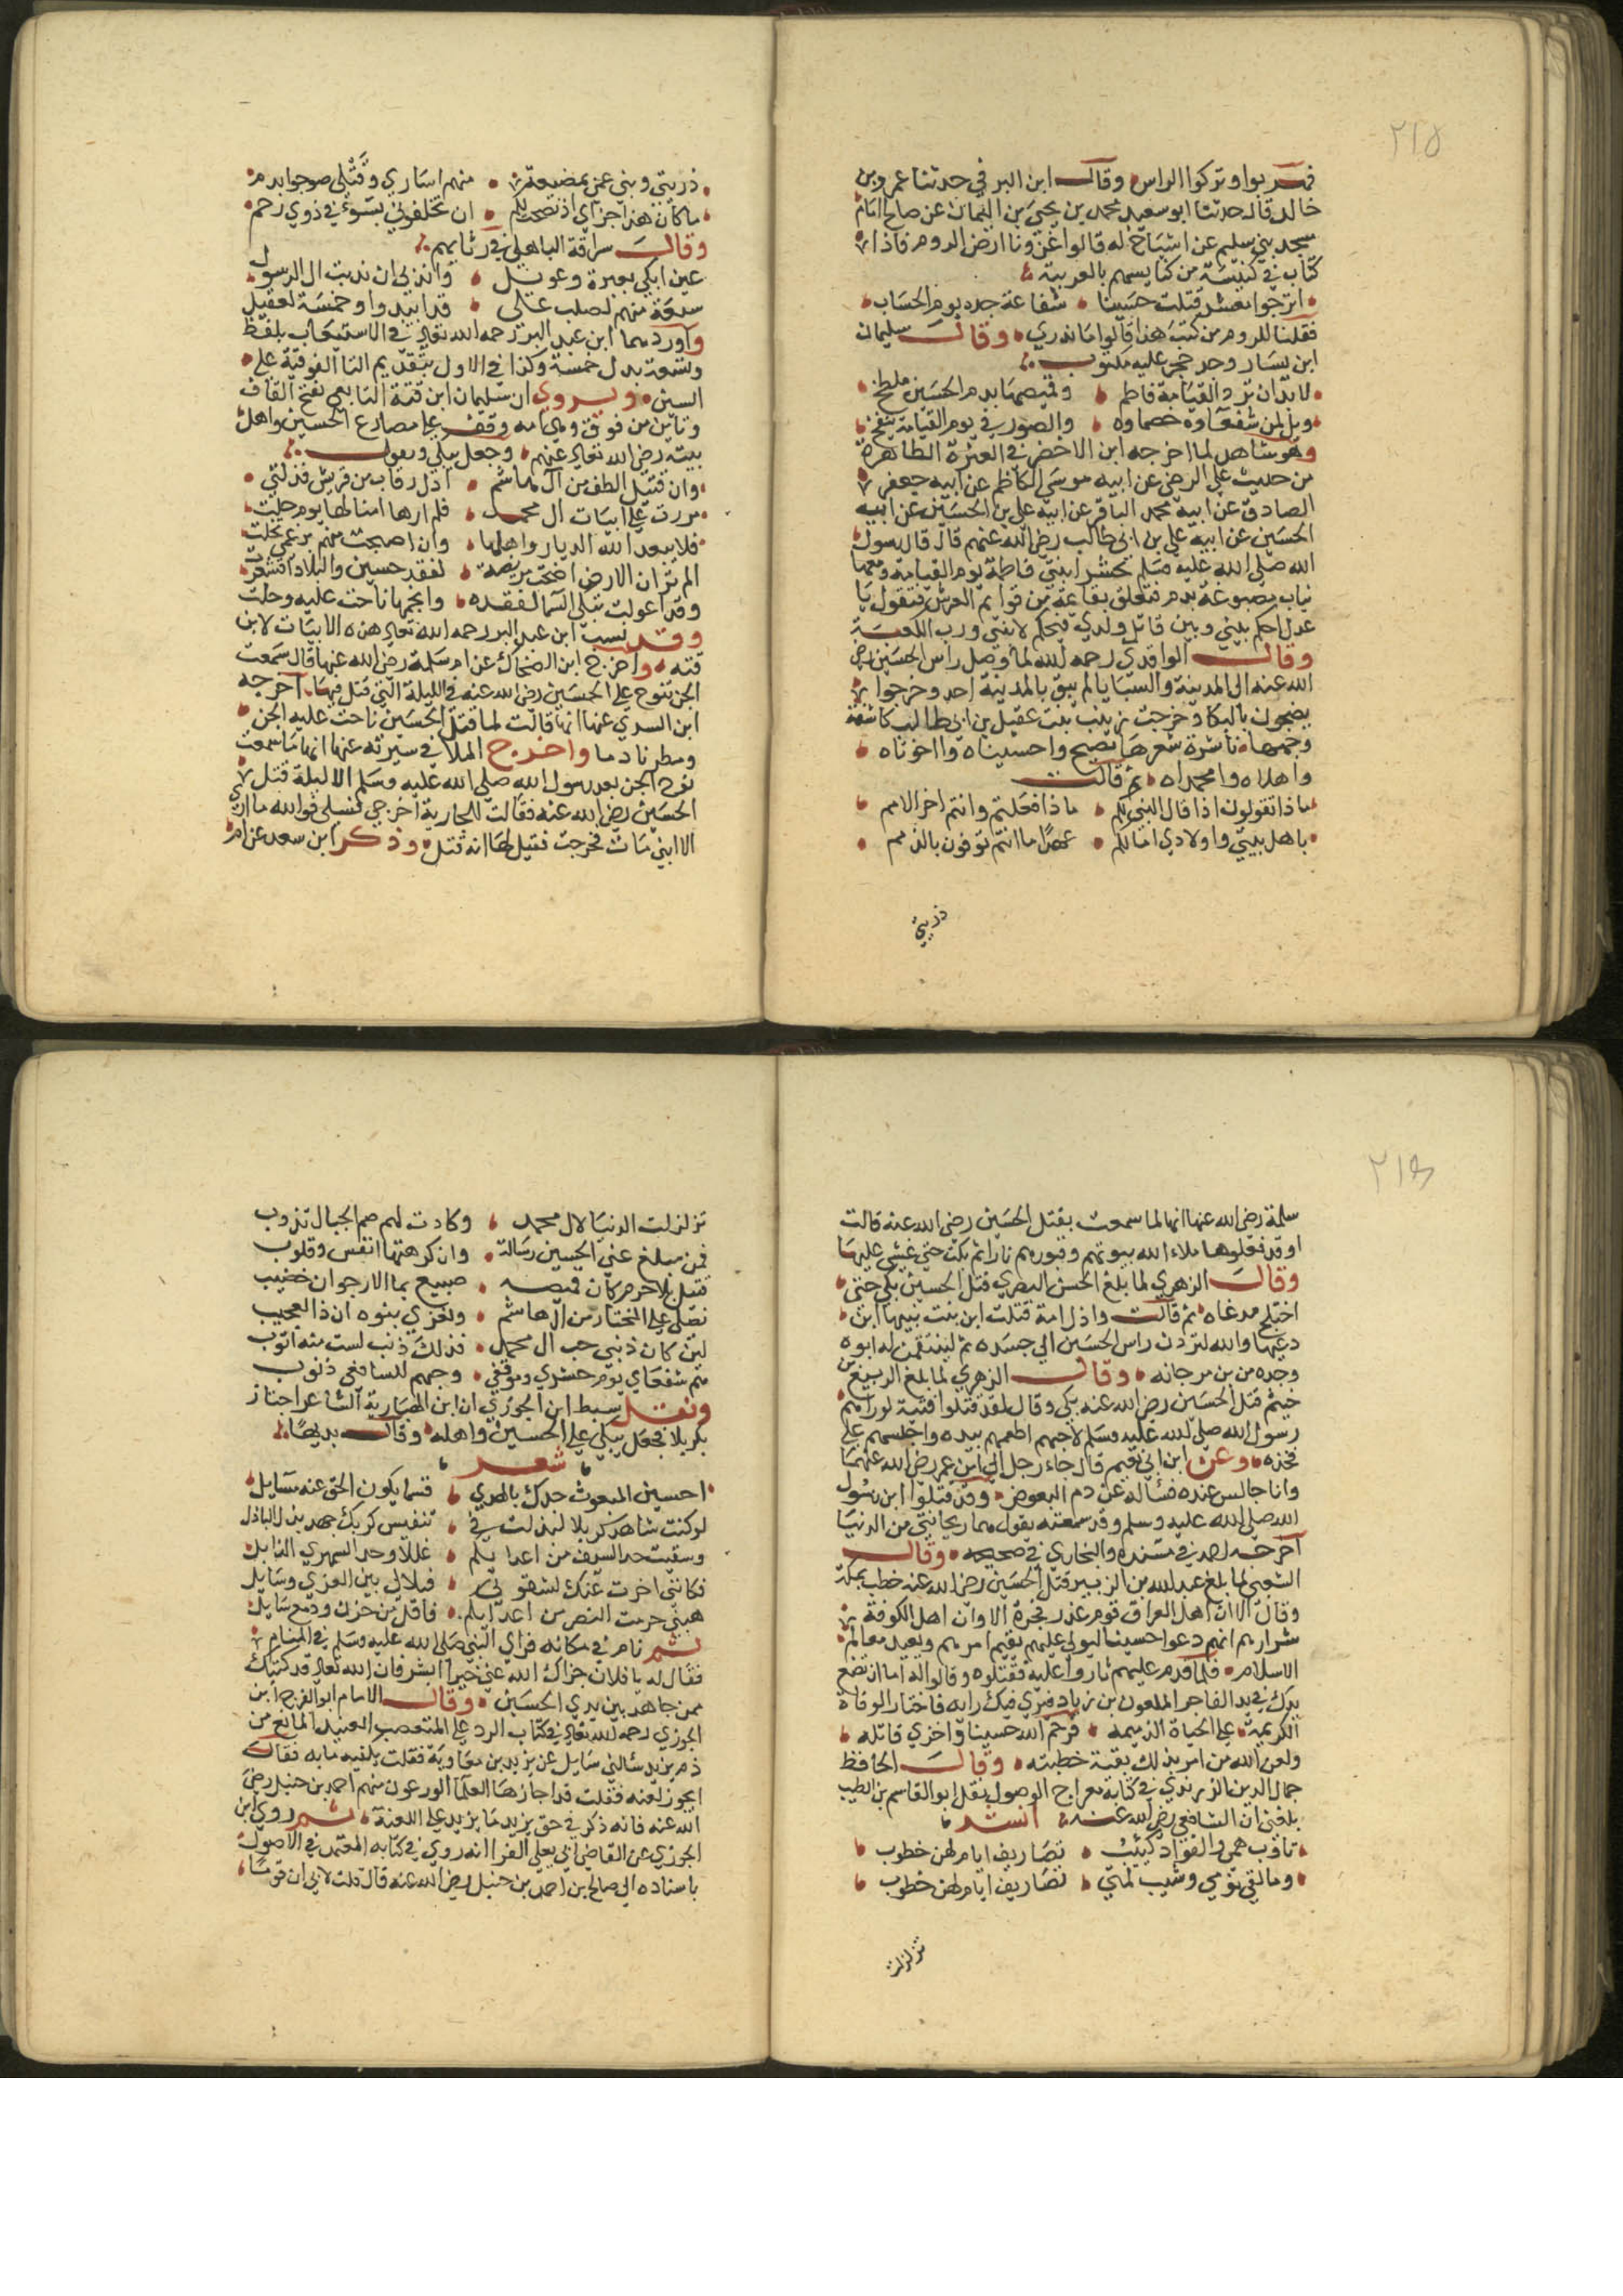 ٢١٥
فهربوا وتركوا الراس وقال ابن البرقي حدثنا عمرو بن
خالد قال حدثنا ابو سعيد محمد بن يحيى بن اليمان عن صالح امام
مسجد بني سليم عن اشياخ له قالوا غزونا ارض الروم فاذا
كتاب في كنيسة من كنايسهم بالعربية
اترجوا معشر قتلت حسينا شفاعة جده يوم الحساب
فقلنا للروم من كتب هذا قالوا ما ندري وقال سليمان
ابن يسار وجد حجر عليه مكتوب
لابد ان ترد القيامة فاطم وقميصها بدم الحسين ملطخ
ويل لمن شفعاوه خصماوه والصور في يوم القيامة ينفخ
وهو شاهد لما اخرجه ابن الاخضر في العترة الطاهرة
من حديث علي الرضى عن ابيه موسى الكاظم عن ابيه جعفر
الصادق عن ابيه محمد الباقر عن ابيه علي بن الحسين عن ابيه
الحسين عن ابيه علي بن ابي طالب رضي الله عنهم قال قال رسول
الله صلى الله عليه وسلم تحشر ابنتي فاطمة يوم القيامة ومعها
ثياب مصبوغة بدم فتعلق بقاعة من قوايم العرش فتقول يا
عدل احكم بيني وبين قاتل ولدي فيحكم لابنتي ورب الكعبة
وقال الواقدي رحمه الله لما وصل راس الحسين رضي
الله عنه الى المدينة والسبايا لم يبق بالمدينة احد وخرجوا
يضجون بالبكا وخرجت زينب بنت عقيل بن ابي طالب كاشفة
وجهها ناشرة شعرها تصيح واحسيناه وااخوتاه
واهلاه وامحمداه ثم قالت
ماذا تقولون اذا قال النبي لكم ماذا فعلتم وانتم اخر الامم
باهل بيتي واولادي امالكم عهدا ما انتم توفون بالذمم
ذريتي
ذريتي وبني عمي بمضيعة منهم اسارى وقتلى ضرجوا بدم
ما كان هذا جزاي اذ نصحت لكم ان تخلفوني بسوء في ذوي رحم
وقال سراقة الباهلي في رثايهم
عين ابكي بعبرة وعويل واندبي ان ندبت ال الرسول
سبعة منهم لصلب علي قد ابيدوا وخمسة لعقيل
واوردهما ابن عبد البر رحمه الله تعالى في الاستيعاب بلفظ
وتسعة بدل خمسة وكذا في الاول بتقديم التا الفوقية على
السين ويروى ان سليمان ابن قتة التابعي بفتح القاف
وتاين من فوق وهي امه وقف على مصارع الحسين واهل
بيته رضي الله تعالى عنهم وجعل يبكي ويقول
وان قتيل الطف من آل هاشم اذل رقاب من قريش فذلت
مررت على ابيات ال محمد فلم ارها امثالها يوم حلت
فلا يبعد الله الديار واهلها وان اصبحت منهم برغمي تخلت
الم تر ان الارض اضحت مريضة لفقد حسين والبلاد اقشعرت
وقد اعولت تبكي السما لفقده وانجمها ناحت عليه وحلت
وقد نسب ابن عبد البر رحمه الله تعالى هذه الابيات لابن
قته واخرج ابن الضحاك عن ام سلمة رضي الله عنها قال سمعت
الجن تنوح على الحسين رضي الله عنه في الليلة التي قتل فيها اخرجه
ابن السدي عنها انها قالت لما قتل الحسين ناحت عليه الجن
ومطرنا دما واخرج الملا في سيرته عنها انها ما سمعت
نوح الجن بعد رسول الله صلى الله عليه وسلم الا ليلة قتل
الحسين رضي الله عنه فقالت للجارية اخرجي فسلي فوالله ما ارى
الا ابني مات فخرجت فقيل لها انه قتل وذكر ابن سعد عن ام
٢١٦
سلمة رضي الله عنها انها لما سمعت بقتل الحسين رضي الله عنه قالت
اوقد فعلوها ملاء الله بيوتهم وقبورهم نارا ثم بكت حتى غشي عليها
وقال الزهري لما بلغ الحسن البصري قتل الحسين بكى حتى
اختلج صدغاه ثم قالت واذل امة قتلت ابن بنت نبيها ابن
دعيها والله لتردن راس الحسين الى جسده ثم لينتقمن له ابوه
وجده من بن مرجانه وقال الزهري لما بلغ الربيع بن
خيثم قتل الحسين رضي الله عنه بكى وقال لقد قتلوا فتية لو راهم
رسول الله صلى الله عليه وسلم لاحبهم اطعمهم بيده واجلسهم على
فخذه وعن ابن ابي نعيم قال جاء رجل الى ابن عمر رضي الله عنهما
وانا جالس عنده فساله عن دم البعوض وقد قتلوا ابن رسول
الله صلى الله عليه وسلم وقد سمعته يقول هما ريحانتي من الدنيا
اخرجه احمد في مسنده والبخاري في صحيحه وقال
الشعبي لما بلغ عبد الله بن الزبير قتل الحسين رضي الله عنه خطب بمكة
وقال الا ان اهل العراق قوم غدر فجرة الا وان اهل الكوفة
شرارهم انهم دعوا حسينا ليولى عليهم يقيم امرهم ويعيد معالم
الاسلام فلما قدم عليهم ثاروا عليه فقتلوه وقالوا له اما ان تضع
يدك في يد الفاجر الملعون بن زياد فيرى فيك رايه فاختار الوفاة
الكريمة على الحياة الذميمه فرحم الله حسينا واخزى قاتله
ولعن الله من امر بذلك بقية خطبته وقال الحافظ
جمال الدين الزرندي في كتابه معراج الوصول بنقل ابو القاسم بن الطيب
بلغني ان الشافعي رضي الله عنه انشد
تاوب همي والفواد كئيب تصاريف ايام لهن خطوب
ومما نفى نومي وشيب لمتي تصاريف ايام لهن خطوب
تزلزلت
تزلزلت الدنيا لال محمد وكادت لهم صم الجبال تذوب
فمن مبلغ عني الحسين رسالة وان كرهتها انفس وقلوب
قتيل بلا جرم كان قميصه صبيغ بما الارجوان خضيب
نصلي على المختار من آل هاشم ونغزي بنوه ان ذا لعجيب
لين كان ذنبي حب ال محمد فذلك ذنب لست منه اتوب
هم شفعاي يوم حشري وموقفي وحبهم للشافعي ذنوب
ونقل سبط ابن الجوزي ان ابن الهبارية الشاعر اجتاز
بكربلا فجعل يبكي على الحسين واهله وقال بديها
شعر
احسين المبعوث جدك بالهدى قسما يكون الحق عنه مسايل
لو كنت شاهد كربلا لبذلت في تنفيس كربك جهد بذل الباذل
وسقيت حد السيف من اعدايكم عللا وحد السمهري الذابل
لكنني اخرت عنك لشقوتي فبلابلي بين الغري وبابل
هبني حرمت النصر من اعدايكم فاقل من حزن ودمع سايل
ثم نام في مكانه فراى النبي صلى الله عليه وسلم في المنام
فقال له يا فلان جزاك الله عني خيرا ابشر فان الله تعالى قد كتبك
ممن جاهد بين يدي الحسين وقال الامام ابو الفرج ابن
الجوزي رحمه الله تعالى في كتاب الرد على المتعصب العنيد المانع من
ذم يزيد سالني سايل عن يزيد بن معاوية فقلت يكفيه ما به فقال
ايجوز لعنه فقلت قد اجازها العلما الورعون منهم احمد بن حنبل رضي
الله عنه فانه ذكر في حق يزيد ما يزيد على اللعنة ثم روى ابن
الجوزي عن القاضي ابي يعلى الفرا انه روى في كتابه المعتمد في الاصول
باسناده الى صالح بن احمد بن حنبل رضي الله عنه قال قلت لابي ان قوما